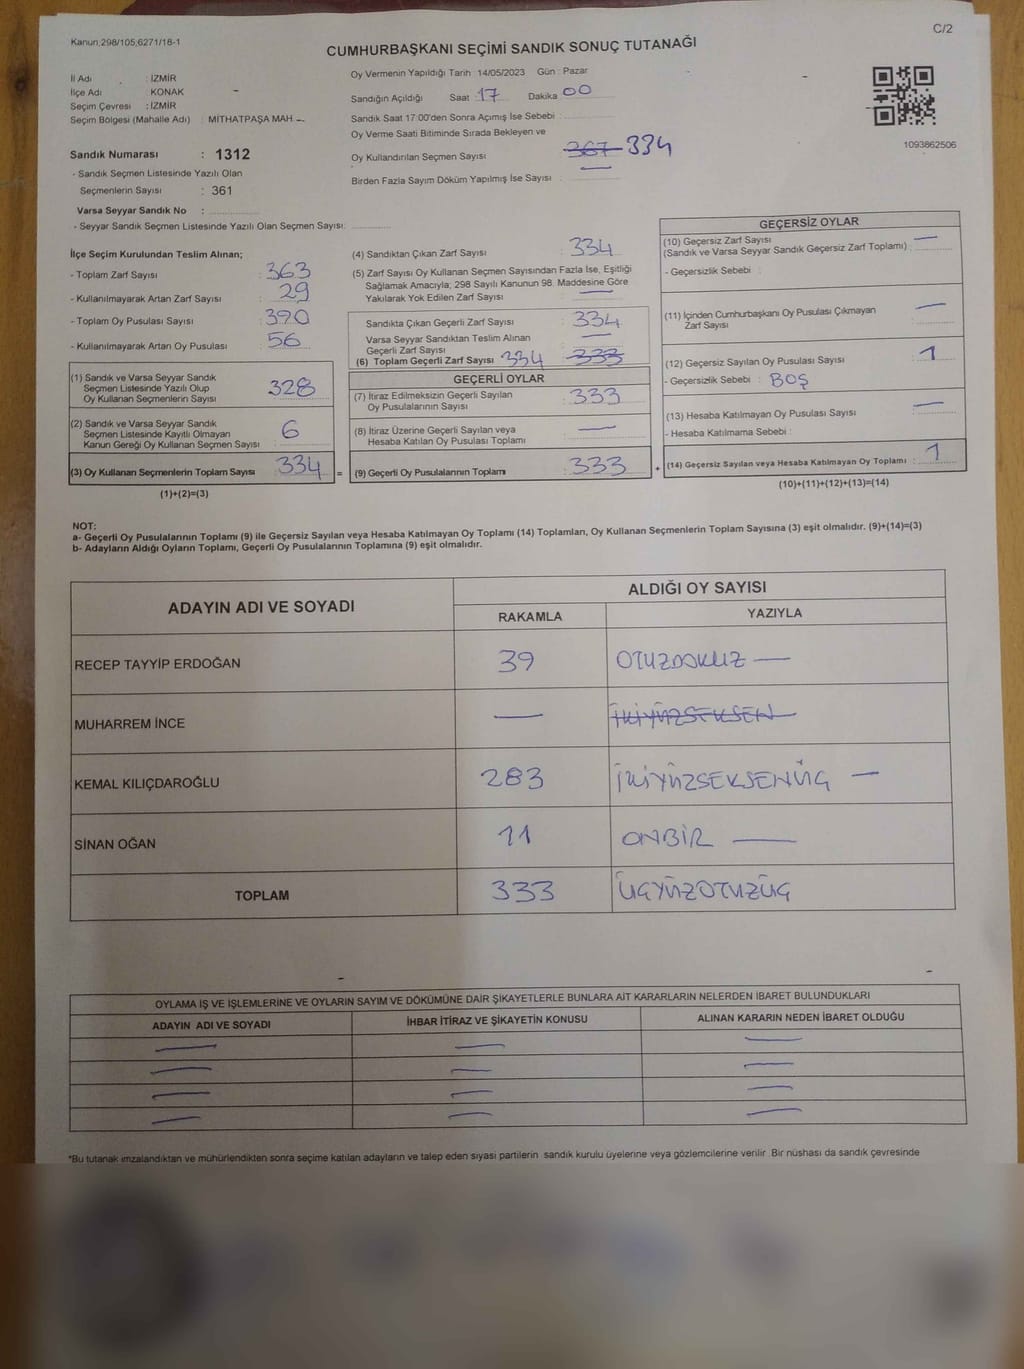 Kanun;298/105,6271/18-1
C/2
CUMHURBAŞKANI SEÇİMİ SANDIK SONUÇ TUTANAĞI
İl Adı : İZMİR
İlçe Adı : KONAK
Seçim Çevresi : İZMİR
Seçim Bölgesi (Mahalle Adı) : MİTHATPAŞA MAH
Oy Vermenin Yapıldığı Tarih 14/05/2023 Gün : Pazar
Sandığın Açıldığı Saat 17 Dakika 00
Sandık Saat 17:00'den Sonra Açımış İse Sebebi :
Oy Verme Saati Bitiminde Sırada Bekleyen ve
Oy Kullandırılan Seçmen Sayısı 367 334
Birden Fazla Sayım Döküm Yapılmış İse Sayısı
1093862506
Sandık Numarası : 1312
- Sandık Seçmen Listesinde Yazılı Olan
Seçmenlerin Sayısı : 361
Varsa Seyyar Sandık No :
- Seyyar Sandık Seçmen Listesinde Yazılı Olan Seçmen Sayısı:
İlçe Seçim Kurulundan Teslim Alınan;
- Toplam Zarf Sayısı : 363
- Kullanılmayarak Artan Zarf Sayısı : 29
- Toplam Oy Pusulası Sayısı : 390
- Kullanılmayarak Artan Oy Pusulası : 56
(1) Sandık ve Varsa Seyyar Sandık
Seçmen Listesinde Yazılı Olup
Oy Kullanan Seçmenlerin Sayısı : 328
(2) Sandık ve Varsa Seyyar Sandık
Seçmen Listesinde Kayıtlı Olmayan
Kanun Gereği Oy Kullanan Seçmen Sayısı : 6
(3) Oy Kullanan Seçmenlerin Toplam Sayısı : 334 =
(1)+(2)=(3)
(4) Sandıktan Çıkan Zarf Sayısı : 334
(5) Zarf Sayısı Oy Kullanan Seçmen Sayısından Fazla İse, Eşitliği
Sağlamak Amacıyla; 298 Sayılı Kanunun 98. Maddesine Göre
Yakılarak Yok Edilen Zarf Sayısı :
Sandıkta Çıkan Geçerli Zarf Sayısı : 334
Varsa Seyyar Sandıktan Teslim Alınan
Geçerli Zarf Sayısı :
(6) Toplam Geçerli Zarf Sayısı 334 333
GEÇERLİ OYLAR
(7) İtiraz Edilmeksizin Geçerli Sayılan
Oy Pusulalarının Sayısı : 333
(8) İtiraz Üzerine Geçerli Sayılan veya
Hesaba Katılan Oy Pusulası Toplamı :
(9) Geçerli Oy Pusulalarının Toplamı : 333 +
GEÇERSİZ OYLAR
(10) Geçersiz Zarf Sayısı
(Sandık ve Varsa Seyyar Sandık Geçersiz Zarf Toplamı) :
- Geçersizlik Sebebi :
(11) İçinden Cumhurbaşkanı Oy Pusulası Çıkmayan
Zarf Sayısı :
(12) Geçersiz Sayılan Oy Pusulası Sayısı : 1
- Geçersizlik Sebebi : BOŞ
(13) Hesaba Katılmayan Oy Pusulası Sayısı :
- Hesaba Katılmama Sebebi :
(14) Geçersiz Sayılan veya Hesaba Katılmayan Oy Toplamı : 1
(10)+(11)+(12)+(13)=(14)
NOT:
a- Geçerli Oy Pusulalarının Toplamı (9) ile Geçersiz Sayılan veya Hesaba Katılmayan Oy Toplamı (14) Toplamları, Oy Kullanan Seçmenlerin Toplam Sayısına (3) eşit olmalıdır. (9)+(14)=(3)
b- Adayların Aldığı Oyların Toplamı, Geçerli Oy Pusulalarının Toplamına (9) eşit olmalıdır.
ADAYIN ADI VE SOYADI
ALDIĞI OY SAYISI
RAKAMLA YAZIYLA
RECEP TAYYİP ERDOĞAN 39 OTUZDOKUZ
MUHARREM İNCE — İKİYÜZSEKSEN
KEMAL KILIÇDAROĞLU 283 İKİYÜZSEKSENÜÇ
SİNAN OĞAN 11 ONBİR
TOPLAM 333 ÜÇYÜZOTUZÜÇ
OYLAMA İŞ VE İŞLEMLERİNE VE OYLARIN SAYIM VE DÖKÜMÜNE DAİR ŞİKAYETLERLE BUNLARA AİT KARARLARIN NELERDEN İBARET BULUNDUKLARI
ADAYIN ADI VE SOYADI İHBAR İTİRAZ VE ŞİKAYETİN KONUSU ALINAN KARARIN NEDEN İBARET OLDUĞU
*Bu tutanak imzalandıktan ve mühürlendikten sonra seçime katılan adayların ve talep eden siyasi partilerin sandık kurulu üyelerine veya gözlemcilerine verilir. Bir nüshası da sandık çevresinde